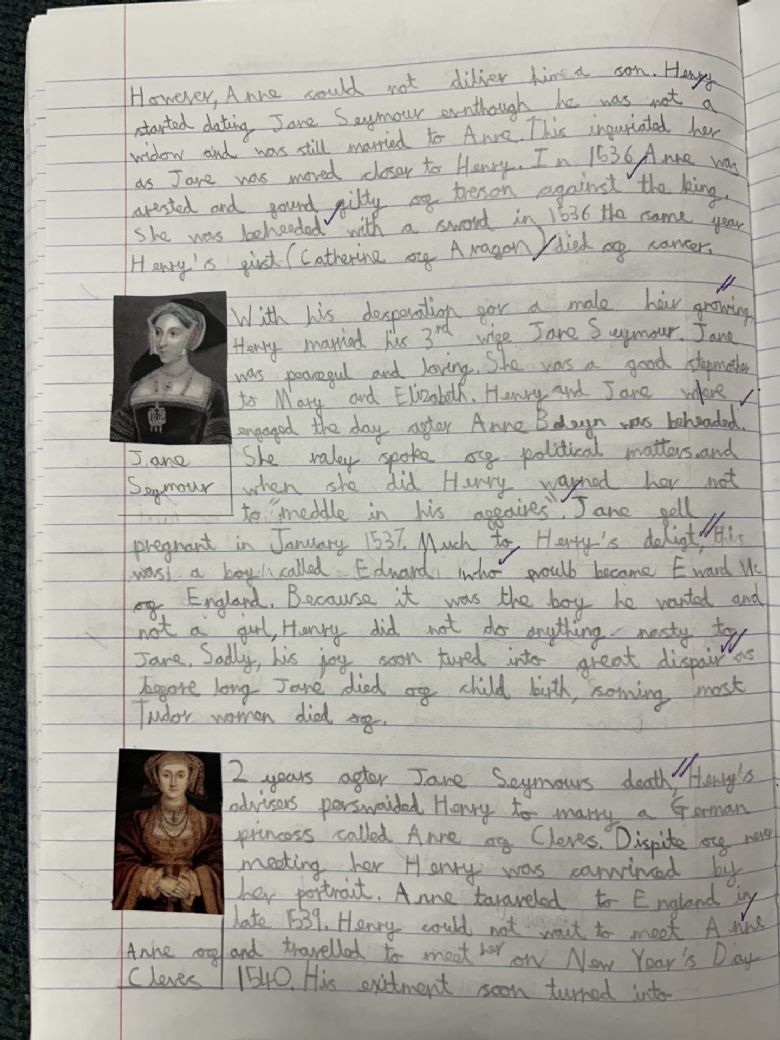 However, Anne could not dilier him a son. Henry
started dating Jane Seymour evnthough he was not a
widow and was still married to Anne. This inguriated her
as Jane was moved closer to Henry. In 1536, Anne was
arested and gound gilty og treson against the king.
She was beheeded with a sword in 1536 the same year
Henry's girst (Catherine og Aragon) died og cancer.
With his desperation gor a male heir growing,
Henry married his 3rd wige Jane Seymour. Jane
was peacegul and loving. She was a good stepmother
to Mary and Elizabeth. Henry and Jane where
engaged the day agter Anne Boleyn was beheaded.
She raley spoke og political matters and
when she did Henry warned her not
to "meddle in his aggaires". Jane gell
pregnant in January 1537. Much to Henry's deligt, this
was a boy called Edward who woulb become Eward
og England. Because it was the boy he wanted and
not a girl, Henry did not do anything nasty to
Jane. Sadly, his joy soon tured into great dispair as
begore long Jane died og child birth, soming most
Tudor women died og.
Jane
Seymour
2 years agter Jane Seymours death, Henry's
advisers perswaided Henry to marry a German
princess called Anne og Cleves. Dispite og never
meeting her Henry was canvinced by
her portrait. Anne taraveled to England in
late 1539. Henry could not wait to meet Anne
and travelled to meet her on New Year's Day
1540. His exitment soon turned into
Anne og
Cleves